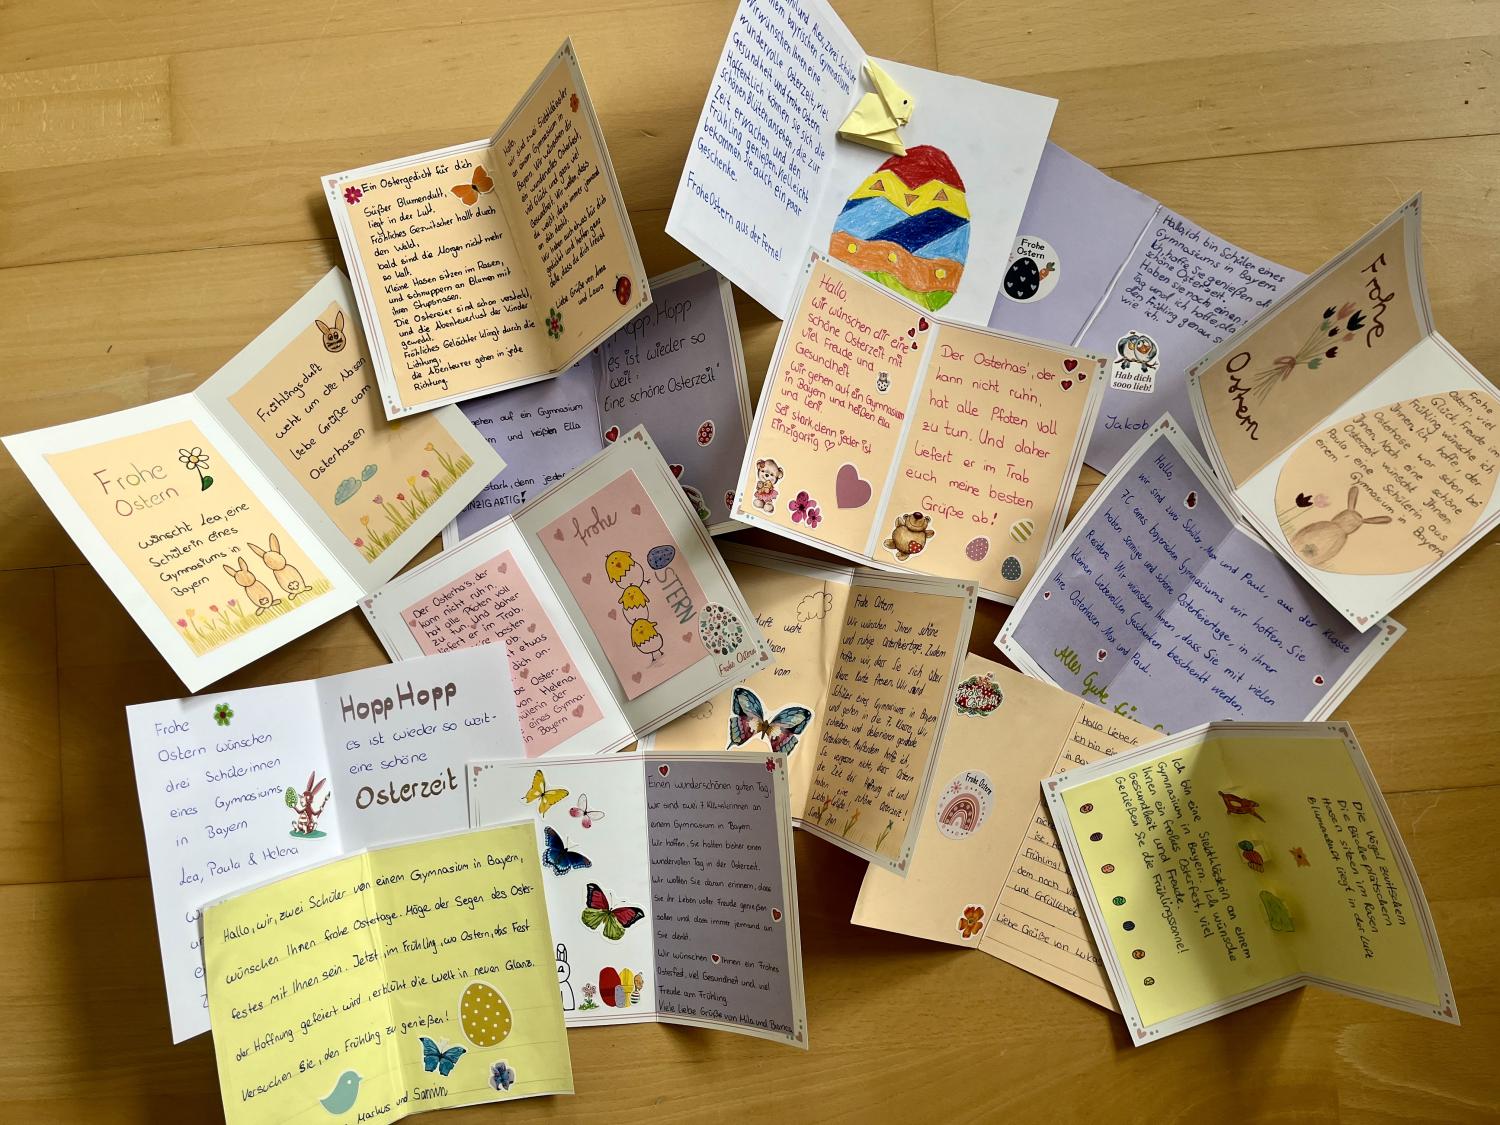 Ein Ostergedicht für dich
Süßer Blumenduft,
liegt in der Luft.
Fröhliches Gezwitscher hallt durch
den Wald,
bald sind die Morgen nicht mehr
so kalt.
Kleine Hasen sitzen im Rasen,
und schnuppern an Blumen mit
ihren Stupsnasen.
Die Ostereier sind schon versteckt,
und die Abenteuerlust der Kinder
geweckt.
Fröhliches Gelächter klingt durch die
Lichtung,
die Abenteurer gehen in jede
Richtung.
Hallo,
wir sind zwei Siebtklässler
an einem Gymnasium in
Bayern. Wir wünschen dir
ein wundervolles Osterfest,
viel Glück und ganz viel
Gesundheit. Wir wollen, dass
du weißt, dass immer jemand
an dich denkt.
Wir haben auch etwas für dich
gedichtet und hoffen ganz
dolle, dass du dich freust
Liebe Grüße von Anna
und Laura
und Alex, zwei Schüler
einem bayrischen Gymnasium.
Wir wünschen Ihnen eine
wundervolle Osterzeit, viel
Gesundheit und frohe Ostern.
Hoffentlich können Sie sich die
schönen Blüten ansehen, die zur
Zeit erwachen und den
Frühling genießen. Vielleicht
bekommen Sie auch ein paar
Geschenke.
Frohe Ostern aus der Ferne!
Frohe
Ostern
Hallo, ich bin Schüler eines
Gymnasiums in Bayern
schöne Osterzeit.
Haben sie noch einen
Tag und ich hoffe, da
den Frühling genau s
wie ich.
Hab dich
sooo lieb!
Jakob
Frohe
Ostern
Frohe
Ostern, viel
Glück, Freude
Frühling wünsche ich
Ihnen. Ich hoffe, der
Osterhase war schon bei
Ihnen. Noch eine schöne
Osterzeit wünscht Ihnen
Paula, eine Schülerin aus
einem Gymnasium in
Bayern
Frohe
Ostern
wünscht Lea, eine
Schülerin eines
Gymnasiums in
Bayern
Frühlingsduft
weht um die Nasen
liebe Grüße vom
Osterhasen
Hopp, Hopp
es ist wieder so
weit:
Eine schöne Osterzeit"
gehen auf ein Gymnasium
und heißen Ella
stark, denn jeder i
EINZIGARTIG!
Hallo,
wir wünschen dir eine
schöne Osterzeit mit
viel Freude und
Gesundheit
Wir gehen auf ein Gymnasium
in Bayern und heißen Ella
und Jeni.
Sei stark denn jeder ist
Einzigartig ♡
Der Osterhas', der
kann nicht ruhn,
hat alle Pfoten voll
zu tun. Und daher
liefert er im Trab
euch meine besten
Grüße ab!
Hallo,
wir sind zwei Schüler, Max und Paul, aus der Klasse
7C eines bayerischen Gymnasiums wir hoffen, Sie
haben sonnige und schöne Osterfeiertage, in ihrer
Residenz. Wir wünschen Ihnen, dass Sie mit vielen
kleinen Liebevollen geschenken beschenkt werden.
Ihre Osterhasen Max und Paul.
Alles Gute
Der Osterha's, der
kann nicht ruhn,
hat alle Pfoten voll
zu tun und daher
liefert er im Trab.
meine besten
ab.
etwas
dich an.
be Oster-
von Helena,
ülerin der
eines Gymna-
in Bayern
frohe
OSTERN
Frohe Ostern
duft weht
Nasen
vom
Frohe Ostern,
Wir wünschen Ihnen schöne
und ruhige Osterfeiertage. Zudem
hoffen wir, dass Sie sich über
diese Karte freuen. Wir sind
Schüler eines Gymnasiums in Bayern
und gehen in die 7. Klasse. Wir
schreiben und dekorieren gerade
Osterkarten. Außerdem hoffe ich,
Sie vergessen nicht, dass Ostern
die Zeit der Hoffnung ist und
haben eine schöne Osterzeit!
Liebe Grüße!
Frohe Ostern
Hallo Liebe/r
ich bin ein
in Bay
ist.
Frühling!
dem noch vi
und Erfüllende
Liebe Grüße von Luka
Ich bin eine Siebtklässlerin an einem
Gymnasium in Bayern. Ich wünsche
Ihnen ein frohes Osterfest, viel
Gesundheit und Freude.
Genießen Sie die Frühlingssonne!
Die Vögel zwitschern
Die Bäche plätschern
Hasen sitzen im Rasen
Blumenduft liegt in der Luft
Frohe
Ostern wünschen
drei Schülerinnen
eines Gymnasiums
in Bayern
Lea, Paula & Helena
Hopp Hopp
es ist wieder so weit-
eine schöne
Osterzeit
Einen wunderschönen guten Tag,
wir sind zwei 7. Klässlerinnen an
einem Gymnasium in Bayern.
Wir hoffen, Sie hatten bisher einen
wundervollen Tag in der Osterzeit.
Wir wollten Sie daran erinnern, dass
Sie ihr Leben voller Freude genießen
sollen und dass immer jemand an
Sie denkt.
Wir wünschen Ihnen ein Frohes
Osterfest, viel Gesundheit und viel
Freude am Frühling.
Viele Liebe Grüße von Mila und Bianca
Hallo, wir, zwei Schüler von einem Gymnasium in Bayern,
wünschen Ihnen frohe Ostertage. Möge der Segen des Oster-
festes mit Ihnen sein. Jetzt, im Frühling, wo Ostern, das Fest
der Hoffnung gefeiert wird, erblüht die Welt in neuen Glanz.
Versuchen Sie, den Frühling zu genießen!
Markus und